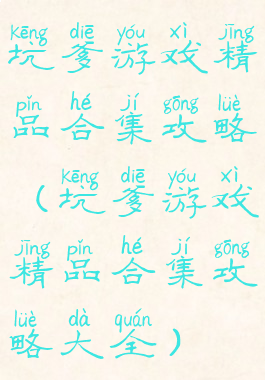 kēng diē yóu xì jīng
坑爹游戏精
pǐn hé jí gōng lüè
品合集攻略
kēng diē yóu xì
(坑爹游戏
jīng pǐn hé jí gōng
精品合集攻
lüè dà quán
略大全)